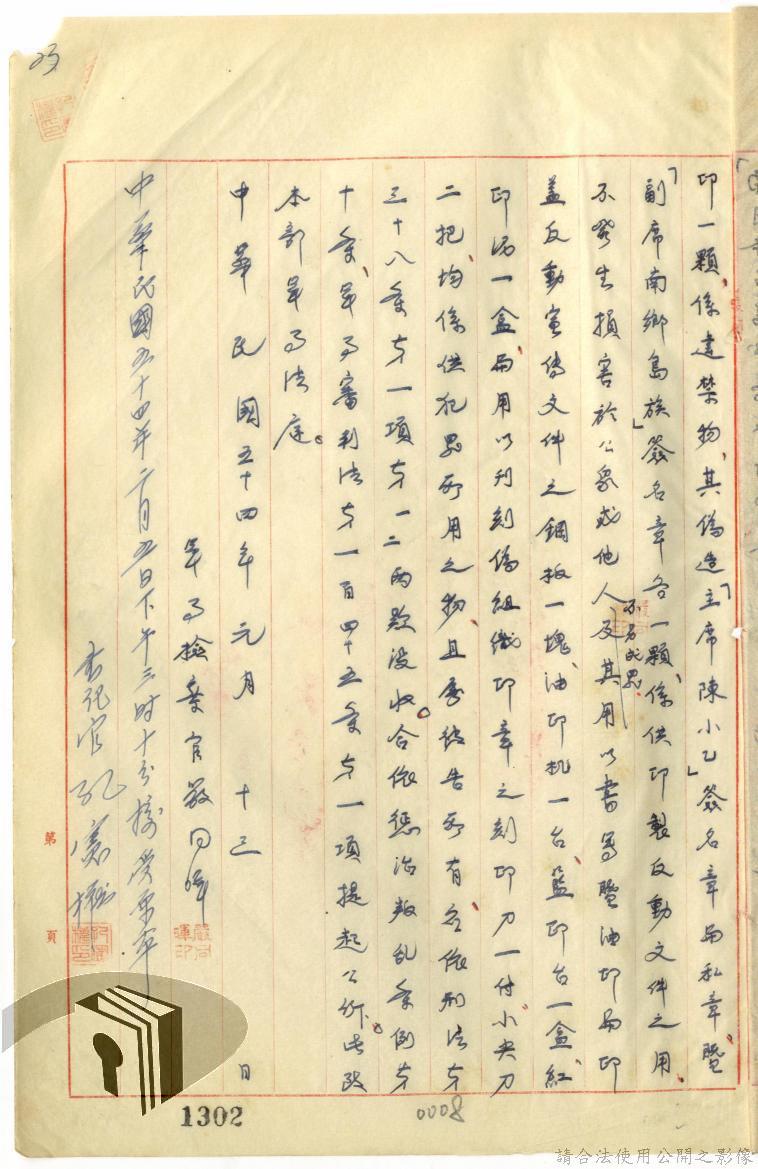 23
印一顆、係違禁物、其偽造「主席陳小乙」簽名章與私章、暨
「副席南鄉島族」簽名章各一顆、係供印製反動文件之用、
不發生損害於公眾或他人、不另成罪、及其用以書寫暨油印與印
蓋反動宣傳文件之鋼板一塊、油印机一台、藍印台一盒、紅
印泥一盒、與用以刊刻偽組織印章之刻印刀一付、小尖刀
二把、均係供犯罪所用之物、且為被告所有、合依刑法第
三十八條第一項第一二兩款沒收。合依懲治叛乱條例第
十條、軍事審判法第一百四十五條第一項提起公訴。此致
本部軍事法庭。
中華民國五十四年元月十三日
軍事檢察官嚴同暉
中華民國五十四年二月五日下午三時十分接受原本
書記官孔憲權
第 頁
1302
0008
請合法使用公開之影像